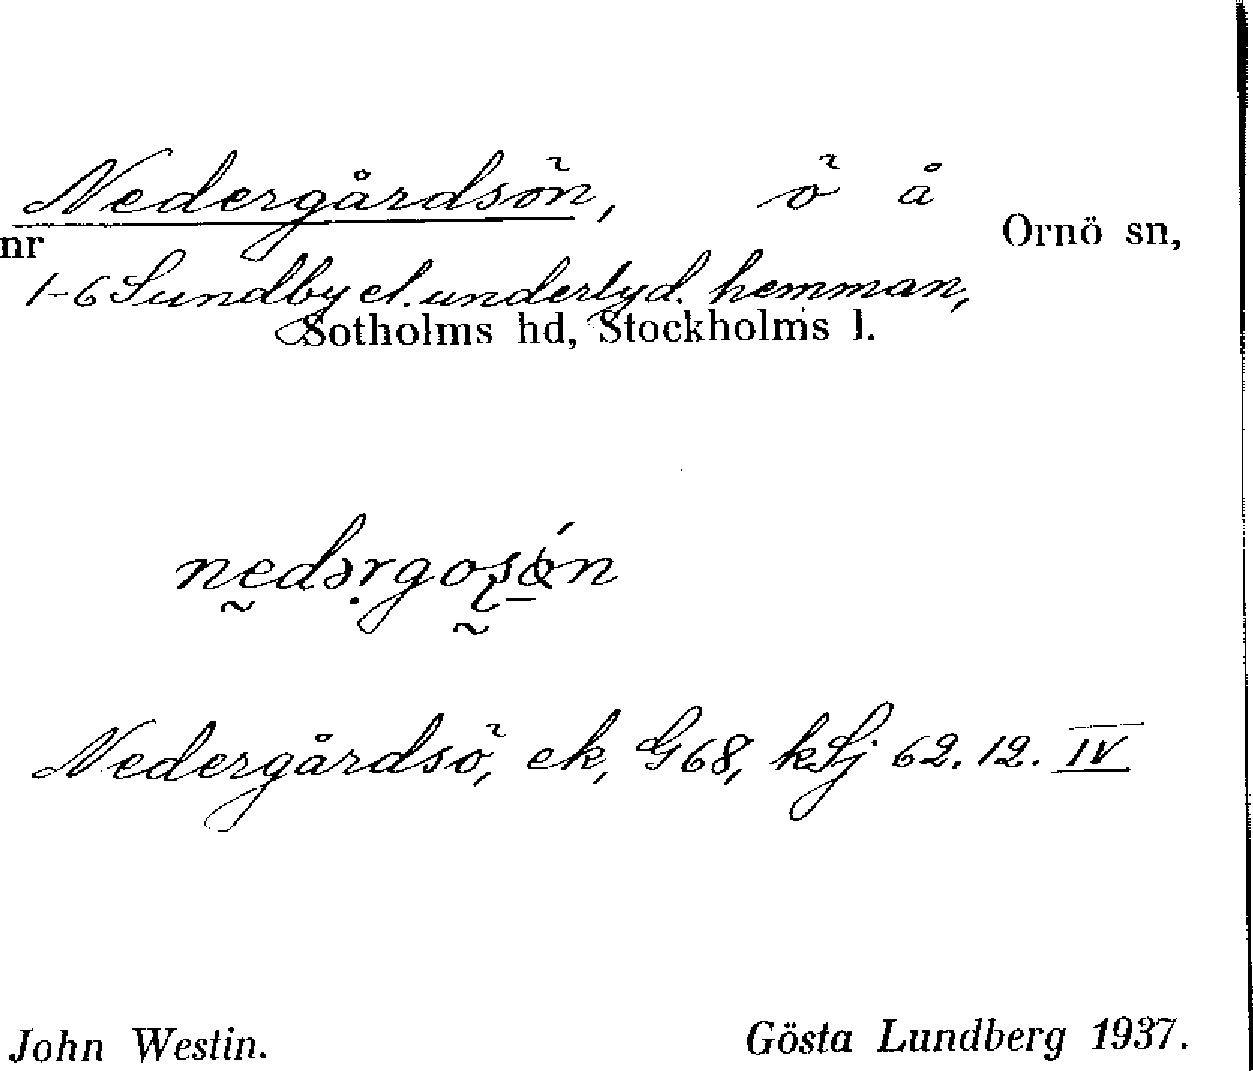 Nedergårdsön, ö å Ornö sn,
nr
1-6 Sundby el. underlyd. hemman,
Sotholms hd, Stockholms l.
Nedergårdsö, ek, G68, kSj 62.12. IV
John Westin. Gösta Lundberg 1937.